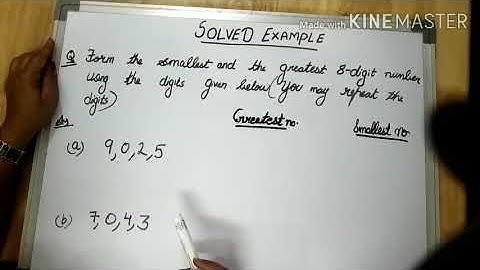 Made with KINEMASTER
SOLVED EXAMPLE
Q Form the smallest and the greatest 8-digit number
using the digits given below (You may repeat the
digits)
Ans Greatest no. Smallest no.
(a) 9,0,2,5
(b) 7,0,4,3